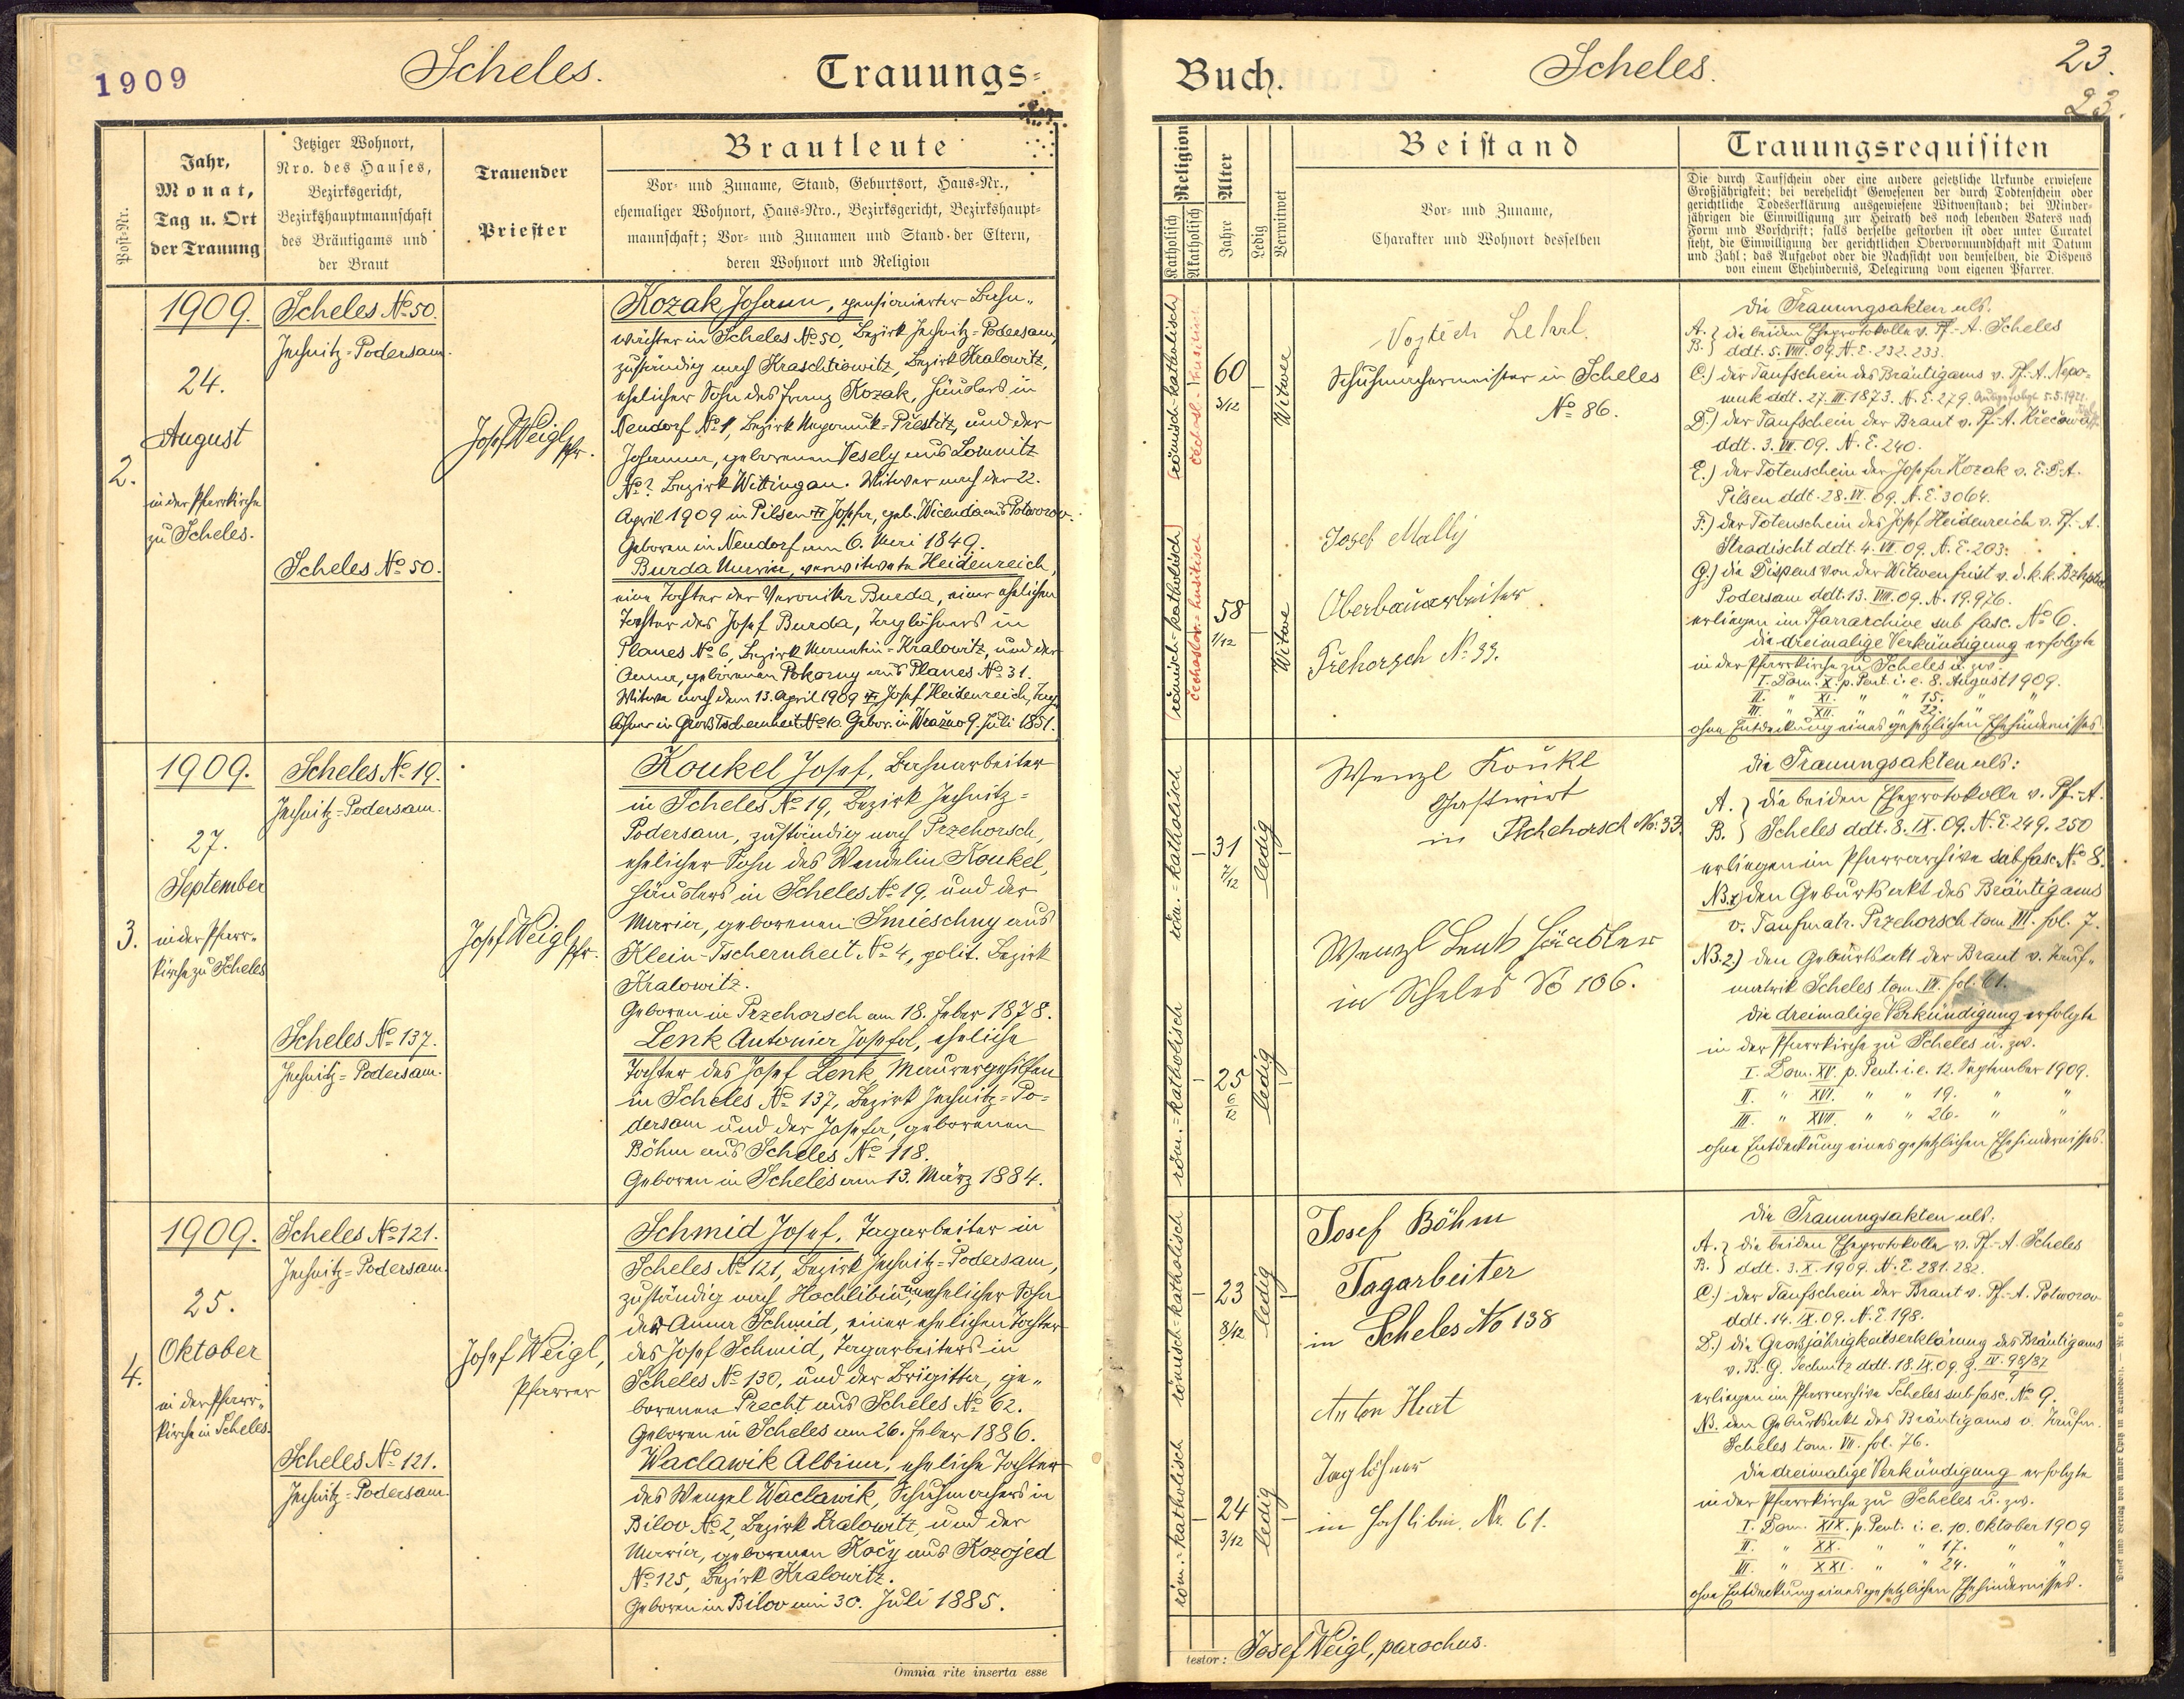 1909
Scheles.
Trauungs-
Post-Nr.
Jahr,
Monat,
Tag u. Ort
der Trauung
Jetziger Wohnort,
Nro. des Hauses,
Bezirksgericht,
Bezirkshauptmannschaft
des Bräutigams und
der Braut
Trauender
Priester
Brautleute
Vor- und Zuname, Stand, Geburtsort, Haus-Nr.,
ehemaliger Wohnort, Haus-Nro., Bezirksgericht, Bezirkshaupt-
mannschaft; Vor- und Zunamen und Stand der Eltern,
deren Wohnort und Religion
2.
1909.
24.
August
in der Pfarrkirche
zu Scheles.
Scheles No 50.
Jechnitz-Podersam.
Scheles No 50.
Josef Weigl, Pfr.
Kozak Johann, pensionierter Bahn-
wächter in Scheles No 50, Bezirk Jechnitz-Podersam,
zuständig nach Kraschtiowitz, Bezirk Kralowitz,
ehelicher Sohn des Franz Kozak, Häuslers in
Neudorf No 1, Bezirk Nepomuk-Prestitz, und der
Johanna, geborenen Vesely aus Lomnitz
No ? Bezirk Wittingau. Witwer nach der 22.
April 1909 in Pilsen † Josefa, geb. Wicenda aus Potworov.
Geboren in Neudorf am 6. Mai 1849.
Burda Maria, verwitwete Heidenreich,
eine Tochter der Veronika Burda, einer ehelichen
Tochter des Josef Burda, Taglöhners in
Planes No 6, Bezirk Manetin-Kralowitz, und der
Anna, geborenen Pokorny aus Planes No 31.
Witwe nach dem 13. April 1909 † Josef Heidenreich, Tag-
löhner in Gross Tschernheit No 10. Gebor. in Wrážno 9. Juli 1851.
3.
1909.
27.
September
in der Pfarr-
kirche zu Scheles
Scheles No 19.
Jechnitz-Podersam.
Scheles No 137.
Jechnitz-Podersam.
Josef Weigl, Pfr.
Koukel Josef, Bahnarbeiter
in Scheles No 19, Bezirk Jechnitz-
Podersam, zuständig nach Przehorsch,
ehelicher Sohn des Wendelin Koukel,
Häuslers in Scheles No 19, und der
Maria, geborenen Smieschny aus
Klein-Tschernheit No 4, polit. Bezirk
Kralowitz.
Geboren in Przehorsch am 18. Feber 1878.
Lenk Antonia Josefa, eheliche
Tochter des Josef Lenk, Maurergehilfen
in Scheles No 137, Bezirk Jechnitz-Po-
dersam und der Josefa, geborenen
Böhm aus Scheles No 118.
Geboren in Scheles am 13. März 1884.
4.
1909.
25.
Oktober
in der Pfarr-
kirche in Scheles.
Scheles No 121.
Jechnitz-Podersam.
Scheles No 121.
Jechnitz-Podersam.
Josef Weigl,
Pfarrer
Schmid Josef, Tagarbeiter in
Scheles No 121, Bezirk Jechnitz-Podersam,
zuständig nach Hochlibin, unehelicher Sohn
der Anna Schmid, einer ehelichen Tochter
des Josef Schmid, Tagarbeiters in
Scheles No 130, und der Brigitta, ge-
borenen Precht aus Scheles No 62.
Geboren in Scheles am 26. Feber 1886.
Waclawik Albina, eheliche Tochter
des Wenzel Waclawik, Schuhmachers in
Bilov No 2, Bezirk Kralowitz, und der
Maria, geborenen Kočy aus Kozojed
No 125, Bezirk Kralowitz.
Geboren in Bilov am 30. Juli 1885.
Omnia rite inserta esse
Buch.
Scheles.
23.
23.
Religion
Katholisch
Akatholisch
Alter
Jahre
Ledig
Verwitwet
Beistand
Vor- und Zuname,
Charakter und Wohnort desselben
Trauungsrequisiten
Die durch Taufschein oder eine andere gesetzliche Urkunde erwiesene
Großjährigkeit; bei verehelicht Gewesenen der durch Todtenschein oder
gerichtliche Todeserklärung ausgewiesene Witwenstand; bei Minder-
jährigen die Einwilligung zur Heirath des noch lebenden Vaters nach
Form und Vorschrift; falls derselbe gestorben ist oder unter Curatel
steht, die Einwilligung der gerichtlichen Obervormundschaft mit Datum
und Zahl; das Aufgebot oder die Nachsicht von demselben, die Dispens
von einem Ehehindernis, Delegirung vom eigenen Pfarrer.
römisch-katholisch
čechosl.-husitisch
60
3/12
Witwer
römisch-katholisch
čechoslov.-husitisch
58
1/12
Witwe
Vojtěch
Schuhmachermeister in Scheles
No 86.
Josef Mally
Oberbauarbeiter
Přehorsch No 33.
Die Trauungsakten als:
A. } die beiden Eheprotokolle v. Pf.-A. Scheles
B. } ddt. 5. VIII. 09. N.E. 232. 233.
C.) der Taufschein des Bräutigams v. Pf.-A. Nepo-
muk ddt. 27. III. 1873. N.E. 279.
D.) der Taufschein der Braut v. Pf.-A.
ddt. 3. VII. 09. N.E. 240.
E.) der Totenschein der Josefa Kozak v. E.D.A.
Pilsen ddt. 28. VI. 09. N.E. 3064.
F.) der Totenschein des Josef Heidenreich v. Pf.-A.
Hradischt ddt. 4. VII. 09. N.E. 203.
G.) die Dispens von der Witwenfrist v. d. k.k. Bzhptm.
Podersam ddt. 13. VIII. 09. N. 19.976.
erliegen im Pfarrarchive sub fasc. No 6.
Die dreimalige Verkündigung erfolgte
in der Pfarrkirche zu Scheles u. zw.
I. Dom. X. p. Pent. i. e. 8. August 1909.
II. " XI. " " 15. " "
III. " XII. " " 22. " "
ohne Entdeckung eines gesetzlichen Ehehindernisses.
röm.-katholisch
31
7/12
ledig
röm.-katholisch
25
6/12
ledig
Wenzl Koukl
Gastwirt
in Pschehorsch No: 33.
Wenzl Lenk Häusler
in Scheles No 106.
Die Trauungsakten als:
A. } die beiden Eheprotokolle v. Pf.-A.
B. } Scheles ddt. 8. IX. 09. N.E. 249. 250
erliegen im Pfarrarchive sub fasc. No 8.
NB. 1.) den Geburtsakt des Bräutigams
v. Taufmatr. Przehorsch tom. III. fol. 7.
NB. 2.) den Geburtsakt der Braut v. Tauf-
matrik Scheles tom. VI. fol. 61.
Die dreimalige Verkündigung erfolgte
in der Pfarrkirche zu Scheles u. zw.
I. Dom. XV. p. Pent. i. e. 12. September 1909.
II. " XVI. " " 19. " "
III. " XVII. " " 26. " "
ohne Entdeckung eines gesetzlichen Ehehindernisses.
römisch-katholisch
23
8/12
ledig
röm.-katholisch
24
3/12
ledig
Josef Böhm
Tagarbeiter
in Scheles No 138
Anton Hurt
Taglöhner
in Hochlibin. Nr. 61.
Die Trauungsakten als:
A. } die beiden Eheprotokolle v. Pf.-A. Scheles
B. } ddt. 3. X. 1909. N.E. 281. 282.
C.) der Taufschein der Braut v. Pf.-A. Potworov
ddt. 14. IX. 09. N.E. 198.
D.) die Grossjährigkeitserklärung des Bräutigams
v. B.G. Jechnitz ddt. 18. IX. 09.
erliegen im Pfarrarchive Scheles sub fasc. No 9.
NB. den Geburtsakt des Bräutigams v. Taufm.
Scheles tom. VII. fol. 76.
Die dreimalige Verkündigung erfolgte
in der Pfarrkirche zu Scheles u. zw.
I. Dom. XIX. p. Pent. i. e. 10. Oktober 1909
II. " XX. " " 17. " "
III. " XXI. " " 24. " "
ohne Entdeckung eines gesetzlichen Ehehindernisses.
testor: Josef Weigl, parochus.